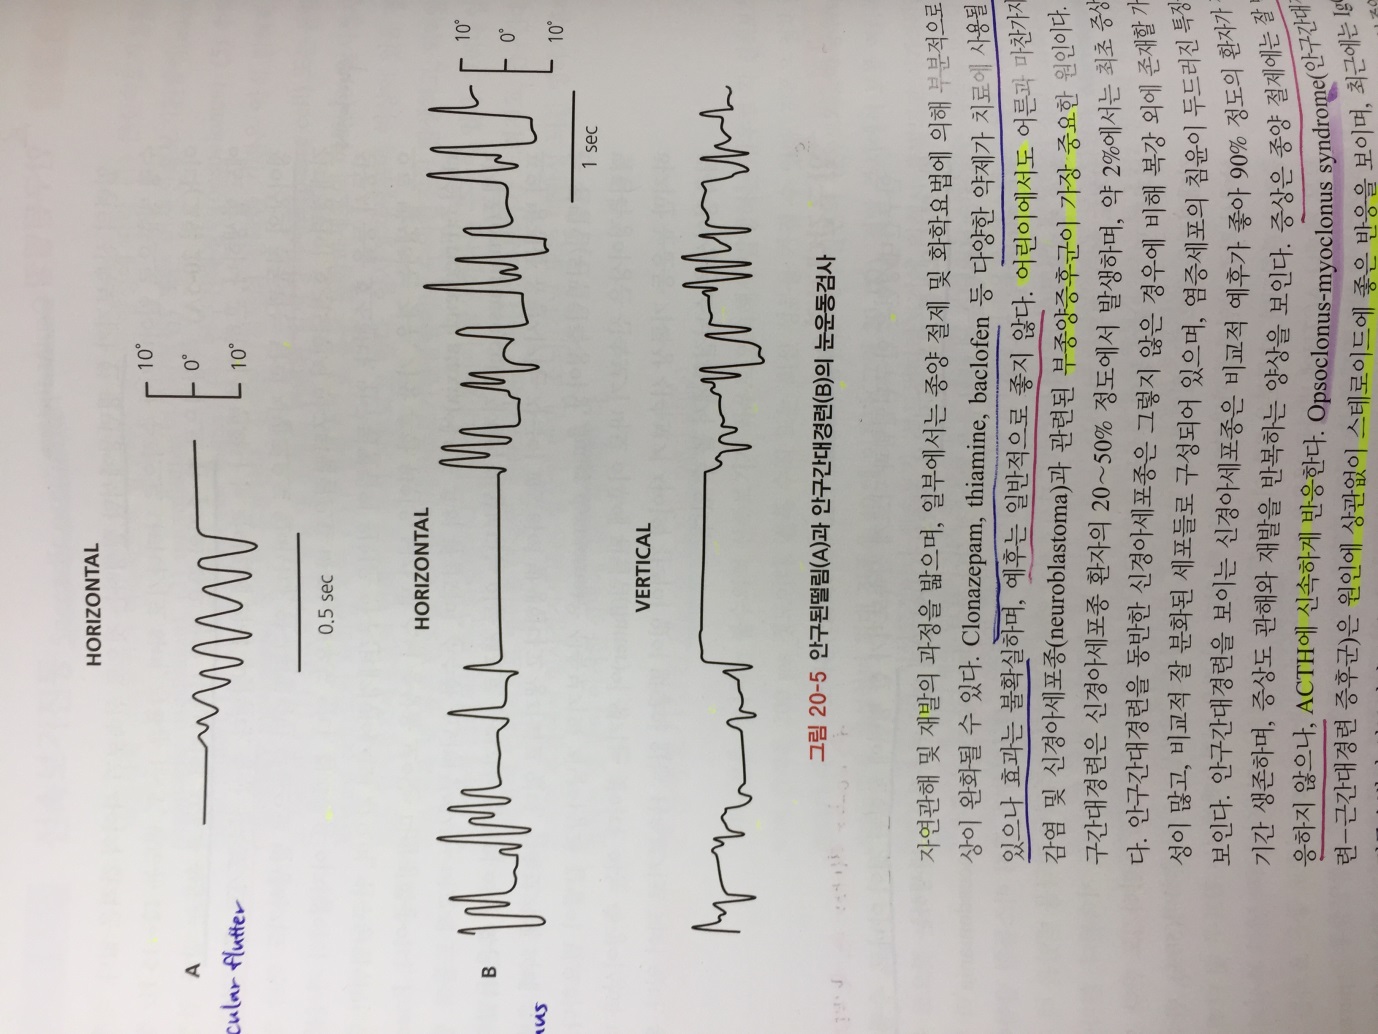 HORIZONTAL
A
10°
0°
10°
0.5 sec
cular flutter
HORIZONTAL
B
10°
0°
10°
1 sec
VERTICAL
그림 20-5 안구된떨림(A)과 안구간대경련(B)의 눈운동검사
자연관해 및 재발의 과정을 밟으며, 일부에서는 종양 절제 및 화학요법에 의해 부분적으로
상이 완화될 수 있다. Clonazepam, thiamine, baclofen 등 다양한 약제가 치료에 사용될
있으나 효과는 불확실하며, 예후는 일반적으로 좋지 않다. 어린이에서도 어른과 마찬가지
감염 및 신경아세포종(neuroblastoma)과 관련된 부종양증후군이 가장 중요한 원인이다.
구간대경련은 신경아세포종 환자의 20~50% 정도에서 발생하며, 약 2%에서는 최초 증상
다. 안구간대경련을 동반한 신경아세포종은 그렇지 않은 경우에 비해 복강 외에 존재할 가
성이 많고, 비교적 잘 분화된 세포들로 구성되어 있으며, 염증세포의 침윤이 두드러진 특징
보인다. 안구간대경련을 보이는 신경아세포종은 비교적 예후가 좋아 90% 정도의 환자가
기간 생존하며, 증상도 관해와 재발을 반복하는 양상을 보인다. 증상은 종양 절제에는 잘
응하지 않으나, ACTH에 신속하게 반응한다. Opsoclonus-myoclonus syndrome(안구간대
련-근간대경련 증후군)은 원인에 상관없이 스테로이드에 좋은 반응을 보이며, 최근에는